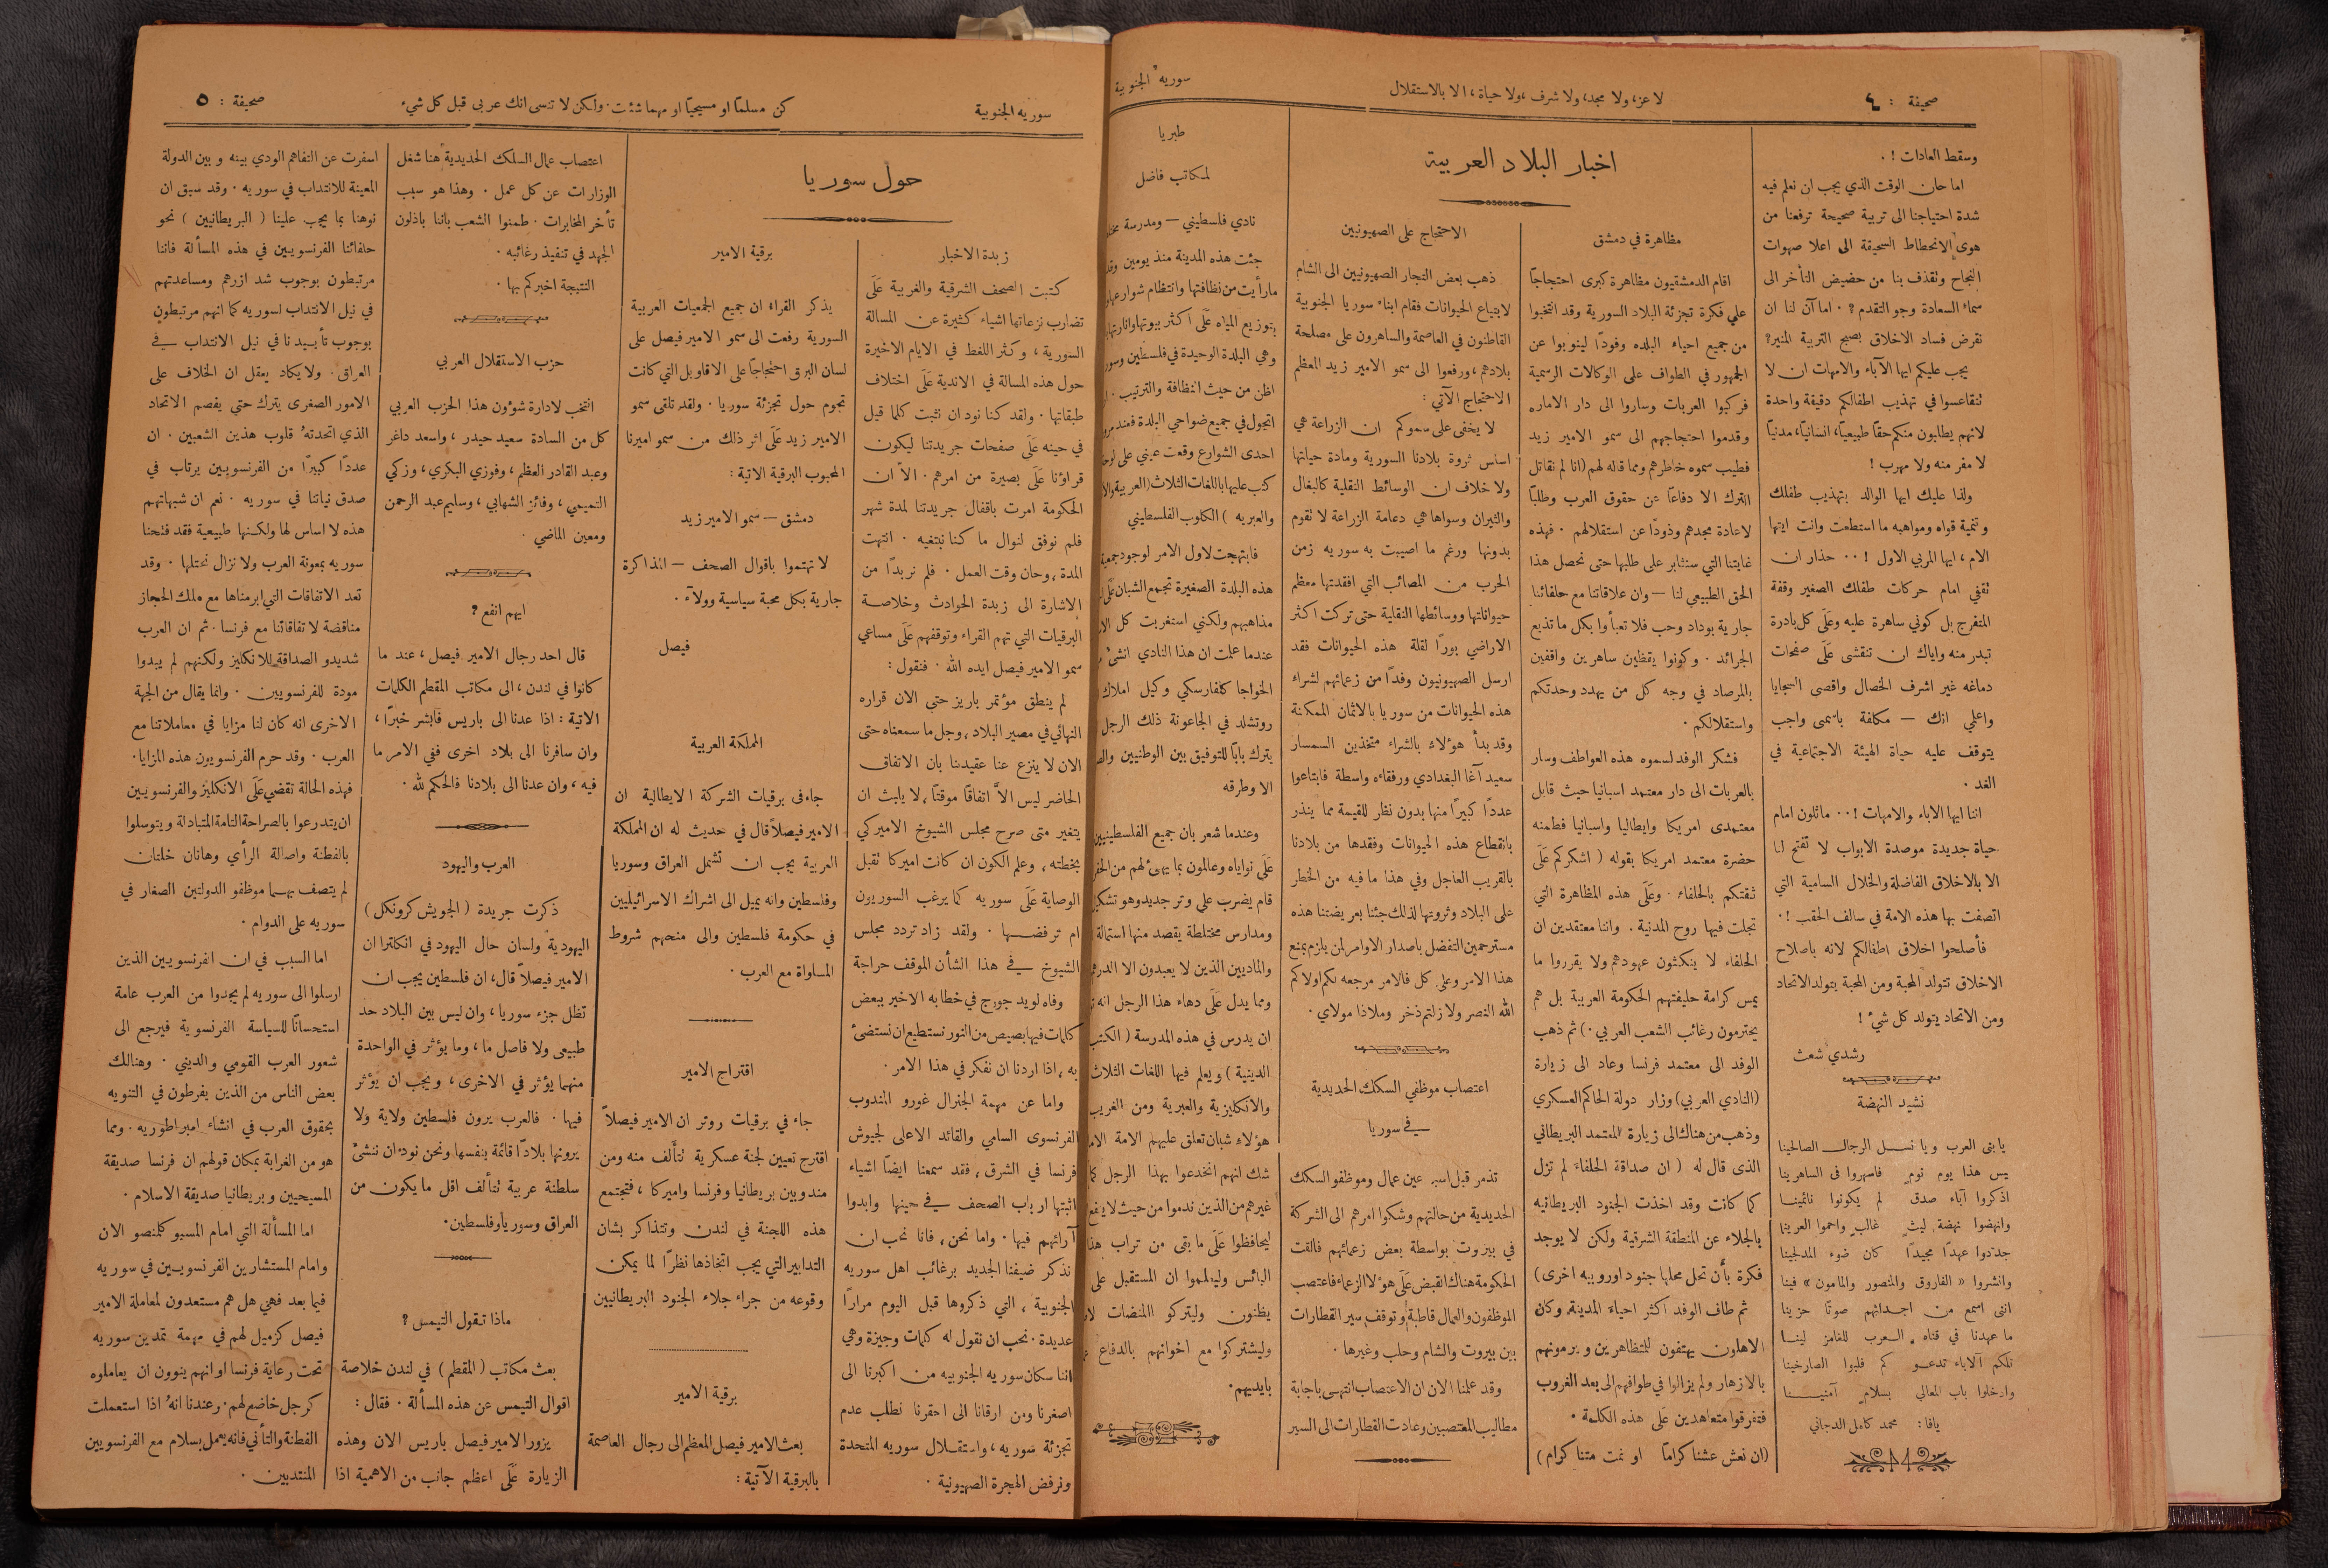 صحيفة : ٤
لا عز، ولا مجد، ولا شرف، ولا حياة، الا بالاستقلال
سورية الجنوبية
وسقط العادات ! .
اما حان الوقت الذي يجب ان نعلم فيه
شدة احتياجنا الى تربية صحيحة ترفعنا من
هوى الانحطاط السحيقة الى اعلا صهوات
النجاح وتقذف بنا من حضيض التأخر الى
سماء السعادة وجو التقدم؟ . اما آن لنا ان
نقرض فساد الاخلاق بصبح التربية المنير؟
يجب عليكم ايها الآباء والامهات ان لا
تتقاعسوا في تهذيب اطفالكم دقيقة واحدة
لانهم يطالبون منكم حقاً طبيعياً، انسانياً، مدنياً
لا مفر منه ولا مهرب !
ولذا عليك ايها الوالد بتهذيب طفلك
وتنمية قواه ومواهبه ما استطعت وانت ايتها
الام، ايها المربي الاول ! .. حذار ان
تقفي امام حركات طفلك الصغير وقفة
المتفرج بل كوني ساهرة عليه وعلى كل بادرة
تبدر منه واياك ان تنقشي على صفحات
دماغه غير اشرف الخصال واقصى السجايا
واعلمي انك — مكلفة باسمى واجب
يتوقف عليه حياة الهيئة الاجتماعية في
الغد .
اننا ايها الاباء والامهات ! .. ماثلون امام
حياة جديدة موصدة الابواب لا تفتح لنا
الا بالاخلاق الفاضلة والخلال السامية التي
اتصفت بها هذه الامة في سالف الحقب ! .
فأصلحوا اخلاق اطفالكم لانه باصلاح
الاخلاق تتولد المحبة ومن المحبة يتولد الاتحاد
ومن الاتحاد يتولد كل شيء !
رشدي شعث
نشيد النهضة
يا بنى العرب ويا نسل الرجال الصالحينا
يس هذا يوم نوم فاسهروا فى الساهرينا
اذكروا آباء صدق لم يكونوا نائمينا
وانهضوا نهضة ليث غالب واحموا العرينا
جددوا عهداً مجيداً كان ضوء المدلجينا
وانشروا « الفاروق والمنصور والمامون » فينا
انني اسمع من اجداثهم صوتاً حزينا
ما عهدنا في قناه العرب للغامز لينا
تلكم الآباء تدعو كم فلبوا الصارخينا
وادخلوا باب المعالي بسلام آمنينا
يافا : محمد كامل الدجاني
اخبار البلاد العربية
مظاهرة في دمشق
اقام الدمشقيون مظاهرة كبرى احتجاجاً
على فكرة تجزئة البلاد السورية وقد انتخبوا
من جميع احياء البلده وفوداً لينوبوا عن
الجمهور في الطواف على الوكالات الرسمية
فركبوا العربات وساروا الى دار الاماره
وقدموا احتجاجهم الى سمو الامير زيد
فطيب سموه خاطرهم ومما قاله لهم (انا لم نقاتل
الترك الا دفاعاً عن حقوق العرب وطلباً
لاعادة مجدهم وذوداً عن استقلالهم . فهذه
غايتنا التي سنثابر على طلبها حتى نحصل هذا
الحق الطبيعي لنا — وان علاقاتنا مع حلفائنا
جارية بوداد وحب فلا تعبأوا بكل ما تذيع
الجرائد . وكونوا يقظين ساهرين واقفين
بالمرصاد في وجه كل من يهدد وحدتكم
واستقلالكم .
فشكر الوفد لسموه هذه العواطف وسار
بالعربات الى دار معتمد اسبانيا حيث قابل
معتمدى امريكا وايطاليا واسبانيا فطمنه
حضرة معتمد امريكا بقوله ( اشكركم على
ثقتكم بالحلفاء . وعلى هذه المظاهرة التي
تجلت فيها روح المدنية . واننا معتقدين ان
الحلفاء لا ينكثون عهودهم ولا يقرروا ما
يمس كرامة حليفتهم الحكومة العربية بل هم
يحترمون رغائب الشعب العربي .) ثم ذهب
الوفد الى معتمد فرنسا وعاد الى زيارة
(النادي العربي) وزار دولة الحاكم العسكري
وذهب من هناك الى زيارة المعتمد البريطاني
الذى قال له ( ان صداقة الحلفاء لم تزل
كما كانت وقد اخذت الجنود البريطانيه
بالجلاء عن المنطقة الشرقية ولكن لا يوجد
فكرة بأن تحل محلها جنود اوروبيه اخرى)
ثم طاف الوفد اكثر احياء المدينة، وكان
الاهلون يهتفون للمتظاهرين ويرمونهم
بالازهار ولم يزالوا في طوافهم الى بعد الغروب
فتفرقوا متعاهدين على هذه الكلمة .
(ان نعش عشنا كراماً او نمت متنا كرام)
الاحتجاج على الصهيونيين
ذهب بعض التجار الصهيونيين الى الشام
لابتياع الحيوانات فقام ابناء سوريا الجنوبية
القاطنون في العاصمة والساهرون على مصلحة
بلادهم، ورفعوا الى سمو الامير زيد المعظم
الاحتجاج الآتي :
لا يخفى على سموكم ان الزراعة هي
اساس ثروة بلادنا السورية ومادة حياتها
ولا خلاف ان الوسائط النقلية كالبغال
والثيران وسواها هي دعامة الزراعة لا تقوم
بدونها ورغم ما اصيبت به سوريه زمن
الحرب من المصائب التي افقدتها معظم
حيواناتها ووسائطها النقلية حتى تركت اكثر
الاراضي بوراً لقلة هذه الحيوانات فقد
ارسل الصهيونيون وفداً من زعمائهم لشراء
هذه الحيوانات من سوريا بالاثمان الممكنة
وقد بدأ هؤلاء بالشراء متخذين السمسار
سعيد آغا البغدادي ورفقاءه واسطة فابتاعوا
عدداً كبيراً منها بدون نظر للقيمة مما ينذر
بانقطاع هذه الحيوانات وفقدها من بلادنا
بالقريب العاجل وفي هذا ما فيه من الخطر
على البلاد وثروتها لذلك جئنا بعريضتنا هذه
مسترحمين التفضل باصدار الاوامر لمن يلزم بمنع
هذا الامر وعلى كل فالامر مرجعه لكم اولاكم
الله النصر ولا زلتم ذخر وملاذا مولاي .
اعتصاب موظفي السكك الحديدية
في سوريا
تذمر قبل اسبوعين عمال وموظفو السكك
الحديدية من حالتهم وشكوا امرهم الى الشركة
في بيروت بواسطة بعض زعمائهم فالقت
الحكومة هناك القبض على هؤلا الزعماء فاعتصب
الموظفون والعمال قاطبة، وتوقف سير القطارات
بين بيروت والشام وحلب وغيرها .
وقد علمنا الان ان الاعتصاب انتهى باجابة
مطاليب المعتصبين وعادت القطارات الى السير
طبريا
لمكاتب فاضل
نادي فلسطيني — ومدرسة
جئت هذه المدينة منذ يومين
ما رأيت من نظافتها وانتظام
بتوزيع المياه على اكثر بيوتها
وهي البلدة الوحيدة في فلسطين
اظن من حيث النظافة والترتيب .
اتجول في جميع ضواحي البلدة
احدى الشوارع وقعت عيني على
كتب عليها باللغات الثلاث (العربية
والعبريه ) الكلوب الفلسطيني
فابتهجت لاول الامر لوجود
هذه البلدة الصغيرة تجمع الشبان
مذاهبهم ولكنني استغربت كل
عندما علمت ان هذا النادي انشئ
الخواجا كلفارسكي وكيل املاك
روتشلد في الجاعونة ذلك الرجل
يترك باباً للتوفيق بين الوطنيين
الا وطرقه
وعندما شعر بان جميع الفلسطينيين
على نواياه وعالمون بما يهيئ لهم من
قام يضرب على وتر جديد وهو
ومدارس مختلطة يقصد منها استمالة
والماديين الذين لا يعبدون الا
ومما يدل على دهاء هذا الرجل انه
ان يدرس في هذه المدرسة ( الكتب
الدينية ) ويعلم فيها اللغات الثلاث
والانكليزية والعبرية ومن الغريب
هؤلاء شبان تعلق عليهم الامة
شك انهم انخدعوا بهذا الرجل
غيرهم من الذين ندموا من حيث لا
ليحافظوا على ما بقى من تراب هذا
البائس وليعلموا ان المستقبل على
يظنون وليتركو المنضات
وليشتركوا مع اخوانهم بالدفاع
بايديهم .
سوريه الجنوبية
كن مسلماً او مسيحياً او مهما شئت . ولكن لا تنسى انك عربى قبل كل شيء
صحيفة : ٥
حول سوريا
زبدة الاخبار
كتبت الصحف الشرقية والغربية على
تضارب نزعاتها اشياء كثيرة عن المسالة
السورية ، وكثر اللغط في الايام الاخيرة
حول هذه المسالة في الاندية على اختلاف
طبقاتها . ولقد كنا نود ان نثبت كلما قيل
في حينه على صفحات جريدتنا ليكون
قراؤنا على بصيرة من امرهم . الا ان
الحكومة امرت باقفال جريدتنا لمدة شهر
فلم نوفق لنوال ما كنا نبتغيه . انتهت
المدة، وحان وقت العمل . فلم نر بداً من
الاشارة الى زبدة الحوادث وخلاصة
البرقيات التي تهم القراء وتوقفهم على مساعي
سمو الامير فيصل ايده الله . فنقول :
لم ينطق مؤتمر باريز حتى الان قراره
النهائي في مصير البلاد، وجل ما سمعناه حتى
الان لا ينزع عنا عقيدتنا بان الاتفاق
الحاضر ليس الا اتفاقاً موقتاً، لا يلبث ان
يتغير متى صرح مجلس الشيوخ الاميركي
بخطته، وعلم الكون ان كانت اميركا تقبل
الوصاية على سوريه كما يرغب السوريون
ام ترفضها . ولقد زاد تردد مجلس
الشيوخ في هذا الشأن الموقف حراجة
وفاه لويد جورج في خطابه الاخير ببعض
كلمات فيها بصيص من النور نستطيع ان نستضئ
به، اذا اردنا ان نفكر في هذا الامر .
واما عن مهمة الجنرال غورو المندوب
الفرنسوى السامي والقائد الاعلى لجيوش
فرنسا في الشرق، فقد سمعنا ايضاً اشياء
اثبتها ارباب الصحف في حينها وابدوا
آرائهم فيها . واما نحن، فانا نحب ان
نذكر ضيفنا الجديد برغائب اهل سوريه
الجنوبية ، التي ذكروها قبل اليوم مراراً
عديدة . نحب ان نقول له كلمات وجيزة وهي
اننا سكان سوريه الجنوبيه من اكبرنا الى
اصغرنا ومن ارقانا الى احقرنا نطلب عدم
تجزئة سوريه، واستقلال سوريه المتحدة
ونرفض الهجرة الصهيونية .
برقية الامير
يذكر القراء ان جميع الجمعيات العربية
السورية رفعت الى سمو الامير فيصل على
لسان البرق احتجاجاً على الاقاويل التي كانت
تحوم حول تجزئة سوريا . ولقد تلقى سمو
الامير زيد على اثر ذلك من سمو اميرنا
المحبوب البرقية الاتية :
دمشق — سمو الامير زيد
لا تهتموا باقوال الصحف — المذاكرة
جارية بكل محبة سياسية وولآء .
فيصل
المملكة العربية
جاء فى برقيات الشركة الايطالية ان
الامير فيصلاً قال في حديث له ان المملكة
العربية يجب ان تشمل العراق وسوريا
وفلسطين وانه يميل الى اشراك الاسرائيليين
في حكومة فلسطين والى منحهم شروط
المساواة مع العرب .
اقتراح الامير
جاء في برقيات روتر ان الامير فيصلاً
اقترح تعيين لجنة عسكرية تتألف منه ومن
مندوبين بريطانيا وفرنسا واميركا ، فتجتمع
هذه اللجنة في لندن وتتذاكر بشان
التدابير التي يجب اتخاذها نظراً لما يمكن
وقوعه من جراء جلاء الجنود البريطانيين
برقية الامير
بعث الامير فيصل المعظم الى رجال العاصمة
بالبرقية الآتية :
اعتصاب عمال السلك الحديدية هنا شغل
الوزارات عن كل عمل . وهذا هو سبب
تأخر المخابرات . طمنوا الشعب باننا باذلون
الجهد في تنفيذ رغائبه .
النتيجة اخبركم بها .
حزب الاستقلال العربي
انتخب لادارة شؤون هذا الحزب العربي
كل من السادة سعيد حيدر، واسعد داغر
وعبد القادر العظم، وفوزي البكري، وزكي
التميمي، وفائز الشهابي، وسليم عبد الرحمن
ومعين الماضي .
ايهم انفع ؟
قال احد رجال الامير فيصل، عند ما
كانوا في لندن، الى مكاتب المقطم الكلمات
الاتية : اذا عدنا الى باريس فابشر خيراً،
وان سافرنا الى بلاد اخرى ففي الامر ما
فيه، وان عدنا الى بلادنا فالحكم لله .
العرب واليهود
ذكرت جريدة ( الجويش كرونكل )
اليهودية ولسان حال اليهود في انكلترا ان
الامير فيصلاً قال، ان فلسطين يجب ان
تظل جزء سوريا، وان ليس بين البلاد حد
طبيعى ولا فاصل ما، وما يؤثر في الواحدة
منهما يؤثر في الاخرى، ويجب ان يؤثر
فيها . فالعرب يرون فلسطين ولاية ولا
يرونها بلاداً قائمة بنفسها ونحن نود، ان ننشئ
سلطنة عربية تتألف اقل ما يكون من
العراق وسوريا وفلسطين .
ماذا تقول التيمس ؟
بعث مكاتب ( المقطم ) في لندن خلاصة
اقوال التيمس عن هذه المسألة . فقال :
يزور الامير فيصل باريس الان وهذه
الزيارة على اعظم جانب من الاهمية اذا
اسفرت عن التفاهم الودي بينه وبين الدولة
المعينة للانتداب في سوريه . وقد سبق ان
نوهنا بما يجب علينا ( البريطانيين ) نحو
حلفائنا الفرنسويين في هذه المسألة فاننا
مرتبطون بوجوب شد ازرهم ومساعدتهم
في نيل الانتداب لسوريه كما انهم مرتبطون
بوجوب تأييدنا في نيل الانتداب في
العراق . ولا يكاد يعقل ان الخلاف على
الامور الصغرى يترك حتى يفصم الاتحاد
الذي اتحدته قلوب هذين الشعبين . ان
عدداً كبيراً من الفرنسويين يرتاب في
صدق نياتنا في سوريه . نعم ان شبهاتهم
هذه لا اساس لها ولكنها طبيعية فقد فتحنا
سوريه بمعونة العرب ولا نزال نحتلها . وقد
تعد الاتفاقات التي ابرمناها مع ملك الحجاز
مناقضة لاتفاقاتنا مع فرنسا . ثم ان العرب
شديدو الصداقة للانكليز ولكنهم لم يبدوا
مودة للفرنسويين . وانما يقال من الجهة
الاخرى انه كان لنا مزايا في معاملاتنا مع
العرب . وقد حرم الفرنسويون هذه المزايا .
فهذه الحالة تقضي على الانكليز والفرنسويين
ان يتدرعوا بالصراحة التامة المتبادلة ويتوسلوا
بالفطنة واصالة الرأي وهاتان خلتان
لم يتصف بهما موظفو الدولتين الصغار في
سوريه على الدوام .
اما السبب في ان الفرنسويين الذين
ارسلوا الى سوريه لم يجدوا من العرب عامة
استحساناً للسياسة الفرنسوية فيرجع الى
شعور العرب القومي والديني . وهنالك
بعض الناس من الذين يفرطون في التنويه
بحقوق العرب في انشاء امبراطوريه . ومما
هو من الغرابة بمكان قولهم ان فرنسا صديقة
المسيحيين وبريطانيا صديقة الاسلام .
اما المسألة التي امام المسيو كلمنصو الان
وامام المستشارين الفرنسويين في سوريه
فيما بعد فهي هل هم مستعدون لمعاملة الامير
فيصل كزميل لهم في مهمة تمدين سوريه
تحت رعاية فرنسا او انهم ينوون ان يعاملوه
كرجل خاضع لهم . وعندنا انه اذا استعملت
الفطنة والتأني فانه يعمل بسلام مع الفرنسويين
المنتدبين .